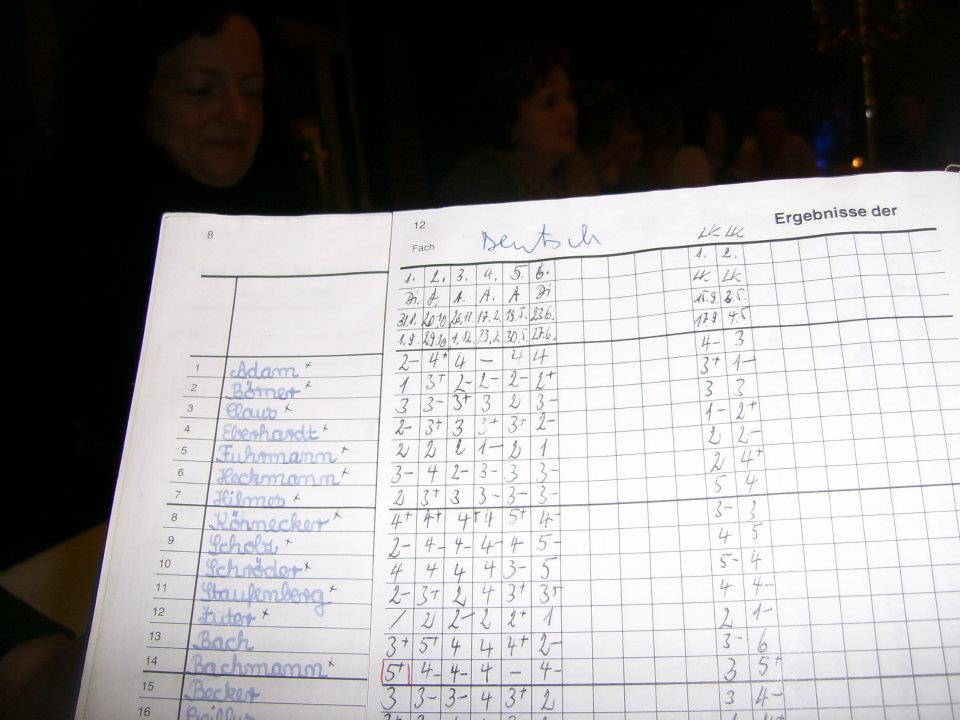 8 12 Ergebnisse der
Fach Deutsch LK LK
1. 2. 3. 4. 5. 6. 1. 2.
Di. A. A. A. A Di LK LK
31.8. 26.11 17.2. 19.5. 23.6. 15.9. 2.5.
1.9. 29.10 1.12. 23.2. 30.5. 27.6. 17.9. 4.5
1 Adam x 2- 4+ 4 – 4 4 4- 3
2 Bömer x 1 3+ 2- 2- 2- 2+ 3+ 1-
3 Claus x 3 3- 3+ 3 2 3- 3 3
4 Eberhardt x 2- 3+ 3 3+ 3+ 2- 1- 2+
5 Fuhrmann x 2 2 2 1- 2 1 2 2-
6 Heckmann x 3- 4 2- 3- 3 3- 2 4+
7 Hilmes x 2 3+ 3 3- 3- 3- 5 4
8 Könnecker x 4+ 4+ 4+ 4 5+ 4- 3- 3
9 Scholz x 2- 4- 4- 4- 4 5- 4 5
10 Schröder x 4 4 4 4 3- 5 5- 4
11 Staufenberg x 2- 3+ 2 4 3+ 4 4-
12 Zuter x / 2 2- 2 2+ 1 2 1-
13 Bach 3+ 5+ 4 4 4+ 2- 3- 6
14 Bachmann x 5+ 4- 4- 4 – 4- 3 5+
15 Becker 3 3- 3- 4 3+ 2 3 4-
16